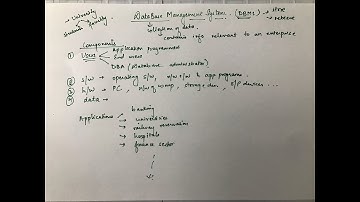 University
students faculty
Database Management System. (DBMS)
store
retrieve
collection of data
contains info. relevant to an enterprise
Components
① Users
Application programmer
End users
DBA (Database administrator)
② s/w → operating s/w, n/w s/w & app programs.
③ h/w → PC, n/w of comp, storage dev. I/P devices ...
④ data →
Applications
→ banking
→ universities
→ railway reservation
→ hospitals
→ finance sector